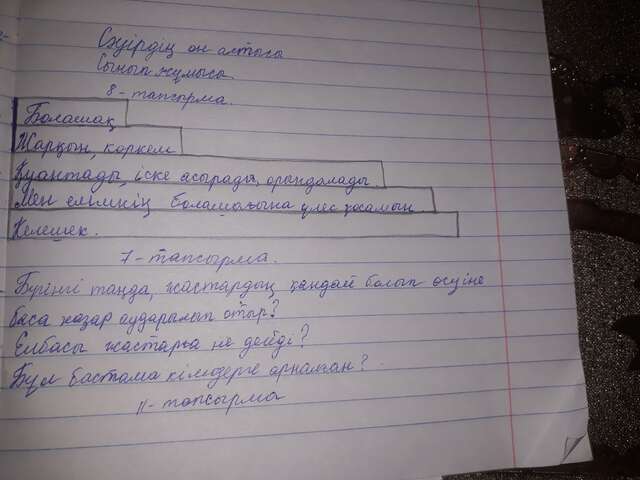 Сәуірдің он алтысы
Сынып жұмысы
8-тапсырма.
Болашақ
Жарқын, көркем
Қуантады, іске асырады, орындалады.
Мен елімнің болашағына үлес қосамын.
Келешек.
7-тапсырма.
Бүгінгі таңда, жастардың қандай болып өсуіне
баса назар аударылып отыр?
Елбасы жастарға не дейді?
Бұл бастама кімдерге арналған?
11-тапсырма